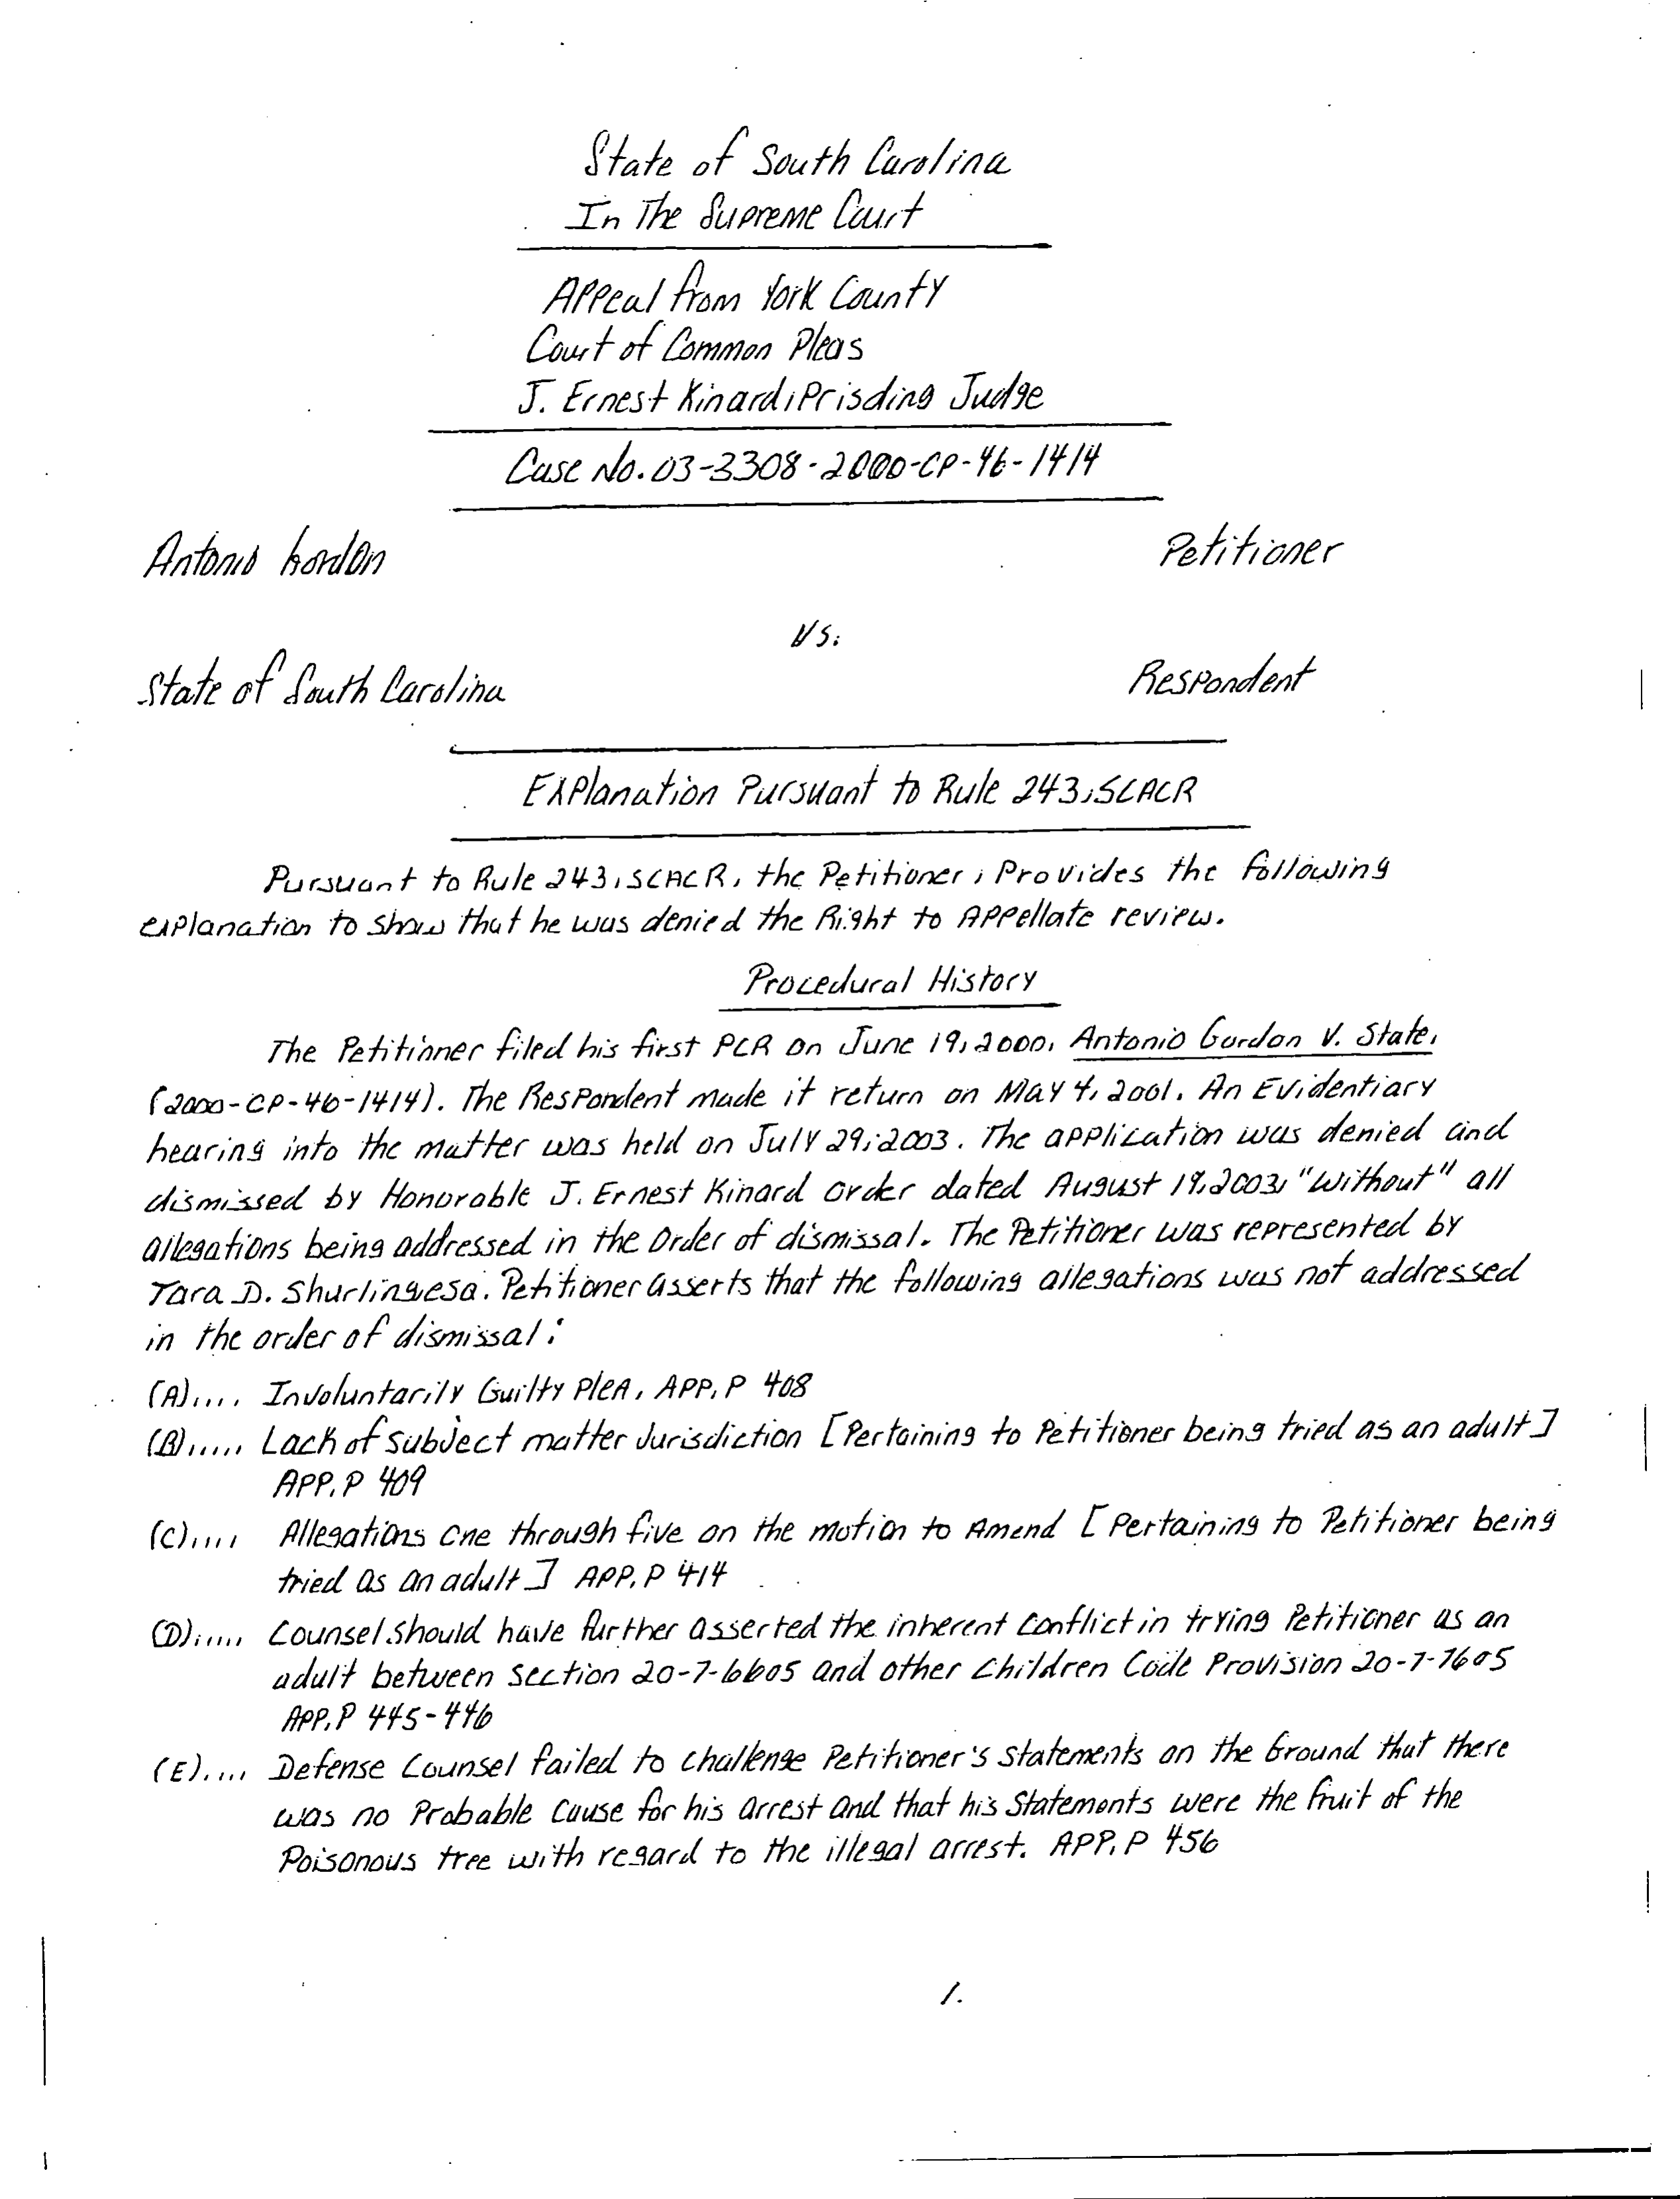 State of South Carolina
In The Supreme Court
Appeal from York County
Court of Common Pleas
J. Ernest Kinard, Prisding Judge
Case No. 03-3308-2000-CP-46-1414
Antonio Gordon Petitioner
vs.
State of South Carolina Respondent
Explanation Pursuant to Rule 243, SCACR
Pursuant to Rule 243, SCACR, the Petitioner, Provides the following
explanation to show that he was denied the Right to Appellate review.
Procedural History
The Petitinner filed his first PCR on June 19, 2000, Antonio Gordon V. State,
(2000-CP-46-1414). The Respondent made it return on May 4, 2001. An Evidentiary
hearing into the matter was held on July 29, 2003. The application was denied and
dismissed by Honorable J. Ernest Kinard order dated August 19, 2003, "Without" all
allegations being addressed in the Order of dismissal. The Petitioner was represented by
Tara D. Shurling, esq. Petitioner asserts that the following allegations was not addressed
in the order of dismissal:
(A).... Involuntarily Guilty Plea, APP. P 408
(B)..... Lack of subject matter Jurisdiction [Pertaining to Petitioner being tried as an adult]
APP. P 409
(C).... Allegations one through five on the motion to Amend [Pertaining to Petitioner being
tried as an adult] APP. P 414
(D)..... Counsel should have further asserted the inherent conflict in trying Petitioner as an
adult between section 20-7-6605 and other Children Code Provision 20-7-7605
APP. P 445-446
(E).... Defense Counsel failed to challenge Petitioner's statements on the Ground that there
was no Probable Cause for his arrest and that his Statements were the fruit of the
Poisonous tree with regard to the illegal arrest. APP. P 456
1.